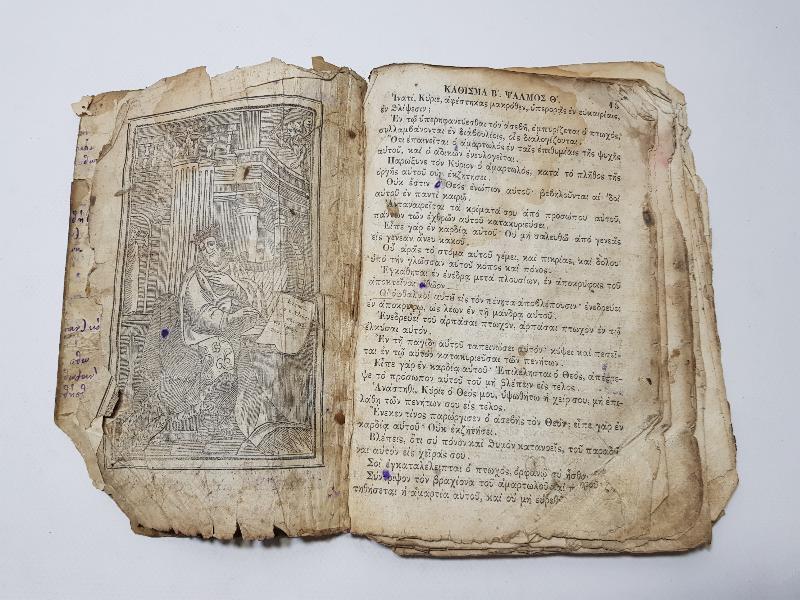 ΚΑΘΙΣΜΑ Β΄. ΨΑΛΜΟΣ Θ΄. 15
Ἱνατί, Κύριε, ἀφέστηκας μακρόθεν, ὑπερορᾷς ἐν εὐκαιρίαις,
ἐν θλίψεσιν;
Ἐν τῷ ὑπερηφανεύεσθαι τὸν ἀσεβῆ, ἐμπυρίζεται ὁ πτωχός,
συλλαμβάνονται ἐν διαβουλίοις, οἷς διαλογίζονται.
Ὅτι ἐπαινεῖται ὁ ἁμαρτωλὸς ἐν ταῖς ἐπιθυμίαις τῆς ψυχῆς
αὐτοῦ, καὶ ὁ ἀδικῶν ἐνευλογεῖται.
Παρώξυνε τὸν Κύριον ὁ ἁμαρτωλός, κατὰ τὸ πλῆθος τῆς
ὀργῆς αὐτοῦ οὐκ ἐκζητήσει.
Οὐκ ἔστιν ὁ Θεὸς ἐνώπιον αὐτοῦ· βεβηλοῦνται αἱ ὁδοὶ
αὐτοῦ ἐν παντὶ καιρῷ.
Ἀνταναιρεῖται τὰ κρίματά σου ἀπὸ προσώπου αὐτοῦ,
πάντων τῶν ἐχθρῶν αὐτοῦ κατακυριεύσει.
Εἶπε γὰρ ἐν καρδίᾳ αὐτοῦ· Οὐ μὴ σαλευθῶ ἀπὸ γενεᾶς
εἰς γενεὰν ἄνευ κακοῦ.
Οὗ ἀρᾶς τὸ στόμα αὐτοῦ γέμει, καὶ πικρίας, καὶ δόλου·
ὑπὸ τὴν γλῶσσαν αὐτοῦ κόπος καὶ πόνος.
Ἐγκάθηται ἐν ἐνέδρᾳ μετὰ πλουσίων, ἐν ἀποκρύφοις τοῦ
ἀποκτεῖναι ἀθῶον.
Οἱ ὀφθαλμοὶ αὐτοῦ εἰς τὸν πένητα ἀποβλέπουσιν· ἐνεδρεύει
ἐν ἀποκρύφῳ, ὡς λέων ἐν τῇ μάνδρᾳ αὐτοῦ.
Ἐνεδρεύει τοῦ ἁρπάσαι πτωχόν, ἁρπάσαι πτωχὸν ἐν τῷ
ἑλκῦσαι αὐτόν.
Ἐν τῇ παγίδι αὐτοῦ ταπεινώσει αὐτόν· κύψει καὶ πεσεῖ-
ται ἐν τῷ αὐτὸν κατακυριεῦσαι τῶν πενήτων.
Εἶπε γὰρ ἐν καρδίᾳ αὐτοῦ· Ἐπιλέλησται ὁ Θεός, ἀπέστρε-
ψε τὸ πρόσωπον αὐτοῦ τοῦ μὴ βλέπειν εἰς τέλος.
Ἀνάστηθι, Κύριε ὁ Θεός μου, ὑψωθήτω ἡ χείρ σου, μὴ ἐπι-
λάθῃ τῶν πενήτων σου εἰς τέλος.
Ἕνεκεν τίνος παρώργισεν ὁ ἀσεβὴς τὸν Θεόν; εἶπε γὰρ ἐν
καρδίᾳ αὐτοῦ· Οὐκ ἐκζητήσει.
Βλέπεις, ὅτι σὺ πόνον καὶ θυμὸν κατανοεῖς, τοῦ παραδοῦ-
ναι αὐτὸν εἰς χεῖράς σου.
Σοὶ ἐγκαταλέλειπται ὁ πτωχός, ὀρφανῷ σὺ ἦσθα
Σύντριψον τὸν βραχίονα τοῦ ἁμαρτωλοῦ καὶ
τηθήσεται ἡ ἁμαρτία αὐτοῦ, καὶ οὐ μὴ εὑρεθῇ